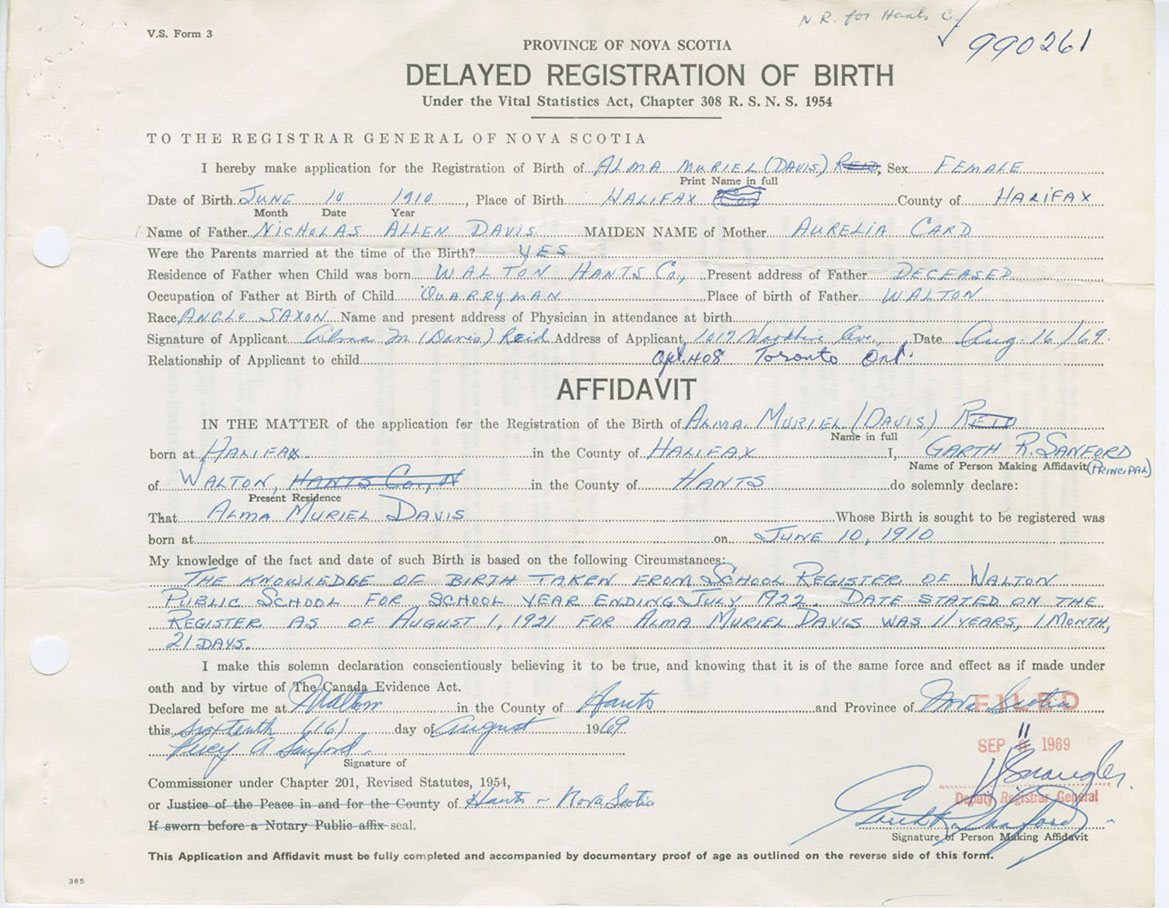 N.R. for Hants Co/
V.S. Form 3
990261
PROVINCE OF NOVA SCOTIA
DELAYED REGISTRATION OF BIRTH
Under the Vital Statistics Act, Chapter 308 R. S. N. S. 1954
TO THE REGISTRAR GENERAL OF NOVA SCOTIA
I hereby make application for the Registration of Birth of ALMA MURIEL (DAVIS) REID, Sex FEMALE
Print Name in full
Date of Birth JUNE 10 1910, Place of Birth HALIFAX County of HALIFAX
Month Date Year
Name of Father NICHOLAS ALLEN DAVIS MAIDEN NAME of Mother AURELIA CARD
Were the Parents married at the time of the Birth? YES
Residence of Father when Child was born WALTON HANTS CO., Present address of Father DECEASED
Occupation of Father at Birth of Child QUARRYMAN Place of birth of Father WALTON
Race ANGLO SAXON Name and present address of Physician in attendance at birth
Signature of Applicant Alma M (Davis) Reid Address of Applicant 1017 Ave., Date Aug. 16/69.
Relationship of Applicant to child Apt. 408 Toronto Ont.
AFFIDAVIT
IN THE MATTER of the application for the Registration of the Birth of ALMA MURIEL (DAVIS) REID
Name in full
born at HALIFAX in the County of HALIFAX I, GARTH R. SANFORD
Name of Person Making Affidavit (PRINCIPAL)
of WALTON, HANTS CO., N in the County of HANTS do solemnly declare:
Present Residence
That ALMA MURIEL DAVIS Whose Birth is sought to be registered was
born at on JUNE 10, 1910
My knowledge of the fact and date of such Birth is based on the following Circumstances:
THE KNOWLEDGE OF BIRTH TAKEN FROM SCHOOL REGISTER OF WALTON
PUBLIC SCHOOL FOR SCHOOL YEAR ENDING JULY 1922. DATE STATED ON THE
REGISTER AS OF AUGUST 1, 1921 FOR ALMA MURIEL DAVIS WAS 11 YEARS, 1 MONTH,
21 DAYS.
I make this solemn declaration conscientiously believing it to be true, and knowing that it is of the same force and effect as if made under
oath and by virtue of The Canada Evidence Act.
Declared before me at Walton in the County of Hants and Province of Nova Scotia
FILED
this sixteenth (16) day of August 1969
SEP 11 1969
Percy A Sanford
Signature of
Commissioner under Chapter 201, Revised Statutes, 1954,
Deputy Registrar General
or Justice of the Peace in and for the County of Hants - Nova Scotia
If sworn before a Notary Public affix seal.
Garth R. Sanford
Signature of Person Making Affidavit
This Application and Affidavit must be fully completed and accompanied by documentary proof of age as outlined on the reverse side of this form.
385